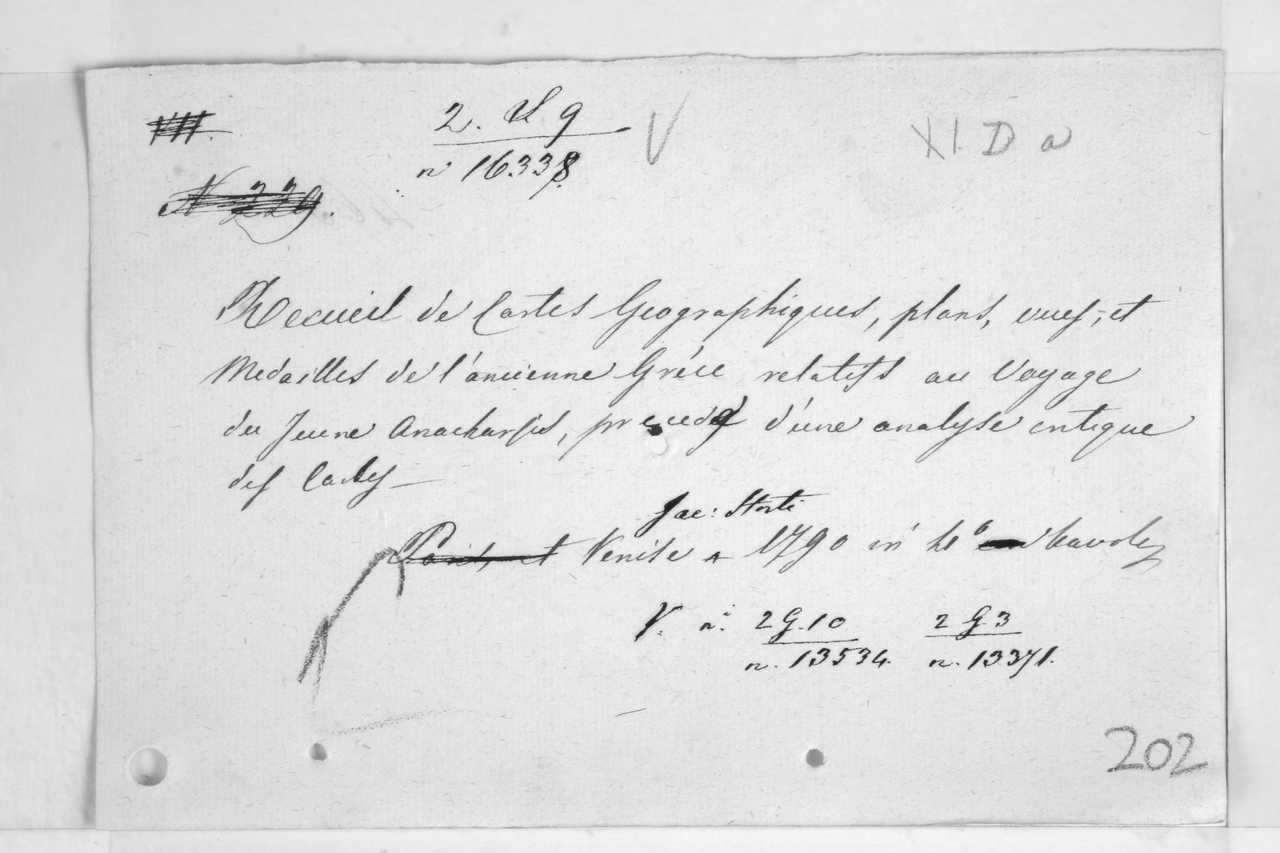 VII.
2. S 9
n. 16338.
V
XI D a
N 229.
Recueil de Cartes Geographiques, plans, vues, et
Medailles de l'ancienne Gréce relatifs au Voyage
du Jeune Anacharsis, precedé d'une analyse critique
des Cartes
Jac: Storti
Paris et Venise 1790 in 4°
V. n. 2 G. 10 2 G 3
n. 13534. n. 13371.
202